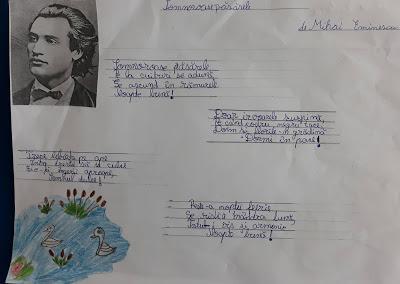 Somnoroase păsărele
de Mihai Eminescu
Somnoroase păsărele
Pe la cuiburi se adună,
Se ascund în rămurele
Noapte bună!
Doar izvoarele suspină,
Pe când codrul negru tace;
Dorm și florile-n grădină
Dormi în pace!
Trece lebăda pe ape
Între trestii să se culce
Fie-ți îngerii aproape,
Somnul dulce!
Peste-a nopții feerie
Se ridică mândra lună,
Totu-i vis și armonie
Noapte bună!